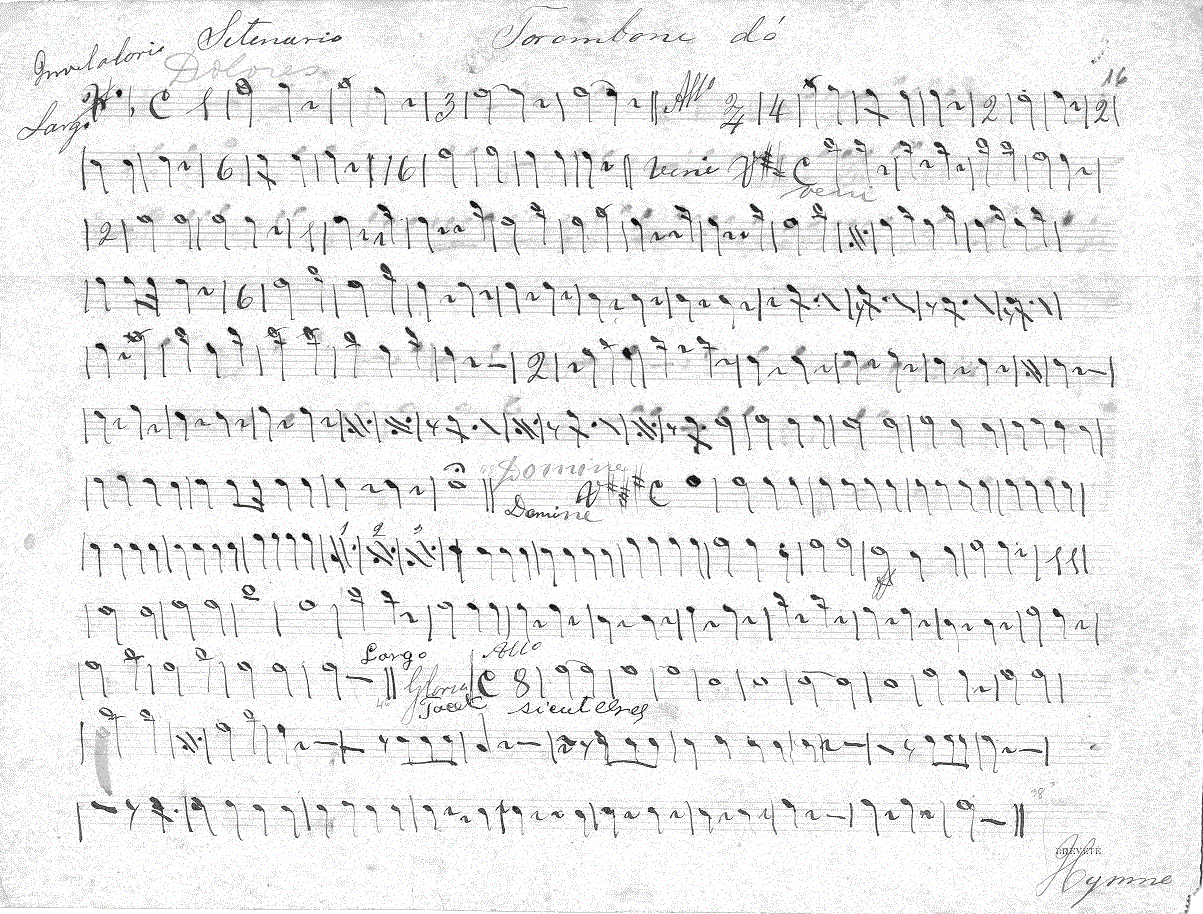 Setenario Trombone dó
Invitatorio
Dolores
16
Largo C 3 Allo 2/4 4 2 2
6 16 veni C
veni
2
6
2
Domine
Domine C
1 2 3
ff
Largo Allo
Gloria C 8
Tacet sicut erat
BREVETÉ
Hymne